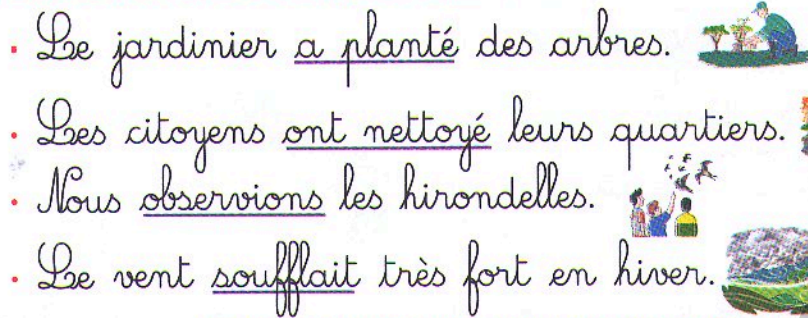 • Le jardinier a planté des arbres.
• Les citoyens ont nettoyé leurs quartiers.
• Nous observions les hirondelles.
• Le vent soufflait très fort en hiver.